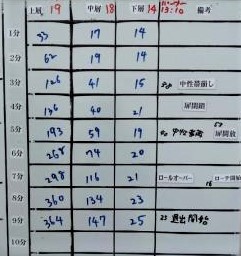 上層 19 中層 18 下層 14 13:10 備考
1分 33 17 14
2分 62 19 14
3分 126 41 15 中性帯崩し
4分 136 40 21 扉閉鎖
5分 193 59 19 中性帯 扉開放
6分 268 74 20
7分 298 116 21 ロールオーバー
8分 360 134 23
9分 364 147 25 退出開始
10分